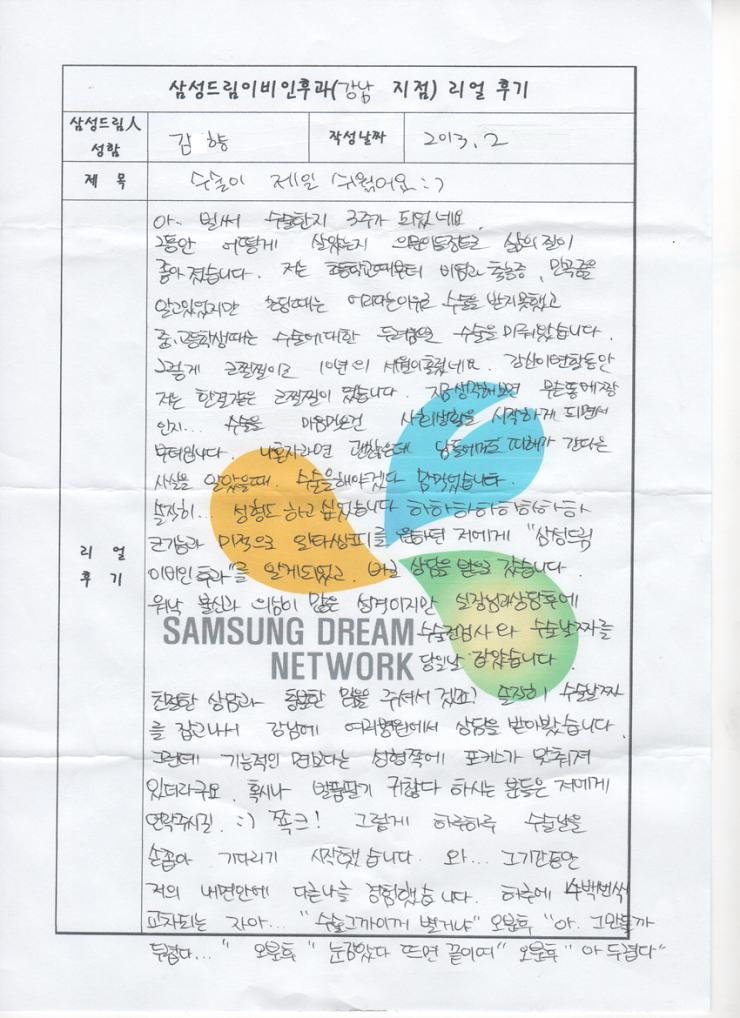 삼성드림이비인후과(강남 지점) 리얼 후기
삼성드림人 성함
김 향
작성날짜
2013. 2
제 목
수술이 제일 쉬웠어요 :)
리 얼 후 기
아~ 벌써 수술한지 3주가 되었네요.
그동안 어떻게 살았는지 의문이들정도로 삶의 질이
좋아졌습니다. 저는 초등학교때부터 비염과 축농증, 만곡증을
알고있었지만 초딩때는 어리다는이유로 수술을 받지못했고
중,고등학생때는 수술에대한 두려움으로 수술을 미뤄왔습니다.
그렇게 코찔찔이로 10년의 세월이흘렀네요. 강산이변할동안
저는 한결같은 코찔찔이 였습니다. 지금생각해보면 무슨똥배짱
인지... 수술을 마음먹은건 사회생활을 시작하게 되면서
부터입니다. 나혼자라면 괜찮은데 남들에게도 피해가 간다는
사실을 알았을때. 수술을해야겠다 맘먹었습니다.
솔직히... 성형도 하고 싶었습니다 하하하하하하하하
코기능과 미적으로 일타쌍피를 원하던 저에게 "삼성드림
이비인후과"를 알게되었고. 바로 상담을 받으러 갔습니다.
워낙 불신과 의심이 많은 성격이지만 실장님과상담후에
SAMSUNG DREAM 수술전검사와 수술날짜를
NETWORK 당일날 잡았습니다.
친절한 상담과 충분한 믿음을 주셔서 겠죠? 솔직히 수술날짜
를 잡고나서 강남에 여러병원에서 상담을 받아봤습니다.
그런데 기능적인 면보다는 성형쪽에 포커스가 맞춰져
있더라구요. 혹시나 발품팔기 귀찮다 하시는 분들은 저에게
연락주시길. :) 쪼크! 그렇게 하루하루 수술날을
손꼽아 기다리기 시작했습니다. 와... 그기간동안
저의 내면안에 다른나를 경험했습니다. 하루에 수백번씩
교차되는 자아... "수술그까이게 별거냐" 오분후 "아. 그만둘까
두렵다..." 오분후 "눈감았다 뜨면 끝이여" 오분후 "아 두렵다"